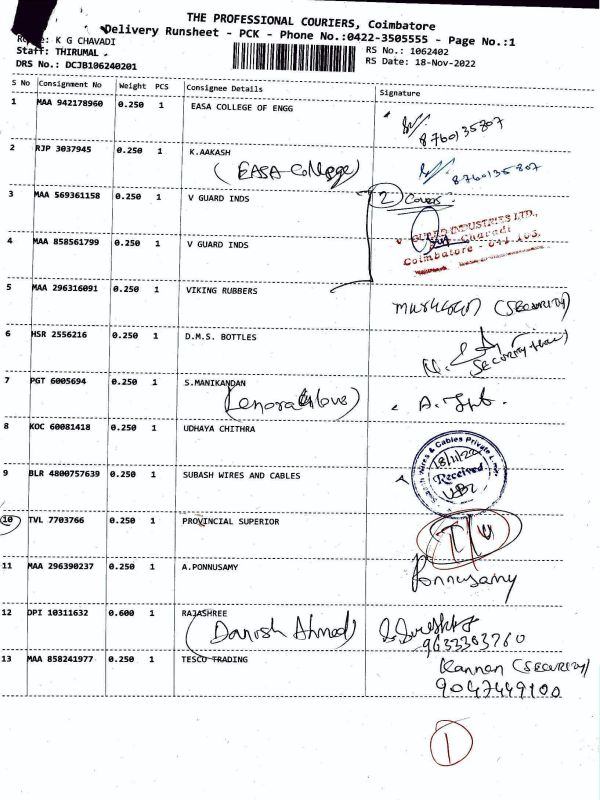 THE PROFESSIONAL COURIERS, Coimbatore
Delivery Runsheet - PCK - Phone No.:0422-3505555 - Page No.:1
K G CHAVADI
RS No.: 1062402
Staff: THIRUMAL .
RS Date: 18-Nov-2022
DRS No.: DCJB106240201
S No Consignment No Weight PCS Consignee Details Signature
1 MAA 942178960 0.250 1 EASA COLLEGE OF ENGG
8760135807
2 RJP 3037945 0.250 1 K.AAKASH
(EASA College) 8760135807
3 MAA 569361158 0.250 1 V GUARD INDS
2 Covers
V GUARD INDUSTRIES LTD.,
Chavadi
4 MAA 858561799 0.250 1 V GUARD INDS
Coimbatore - 641 105.
5 MAA 296316091 0.250 1 VIKING RUBBERS
(SECURITY)
6 HSR 2556216 0.250 1 D.M.S. BOTTLES
7 PGT 6005694 0.250 1 S.MANIKANDAN
8 KOC 60081418 0.250 1 UDHAYA CHITHRA
Subash Wires & Cables Private
18/11/22
9 BLR 4800757639 0.250 1 SUBASH WIRES AND CABLES
Received
10 TVL 7703766 0.250 1 PROVINCIAL SUPERIOR
11 MAA 296390237 0.250 1 A.PONNUSAMY
Ponnusamy
12 DPI 10311632 0.600 1 RAJASHREE
(Danish Ahmed)
9633383760
13 MAA 858241977 0.250 1 TESCO TRADING
Kannan (SECURITY)
9047449100
1